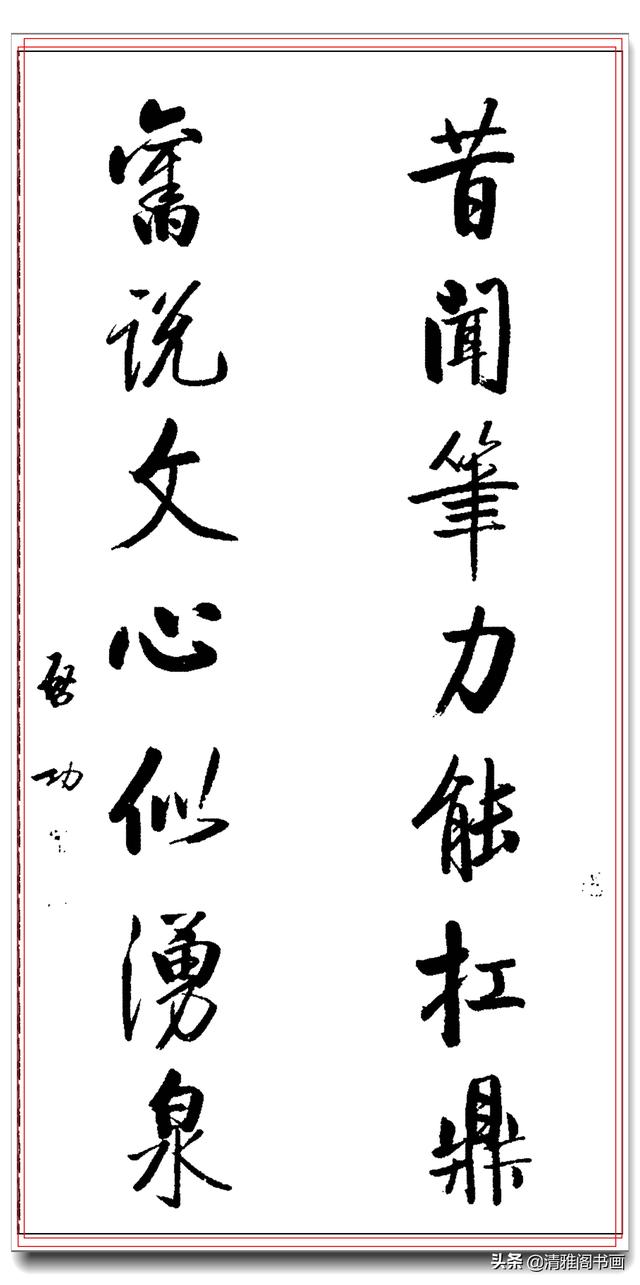 昔闻筆力能扛鼎
舊说文心似湧泉
启功
头条 @清雅阁书画